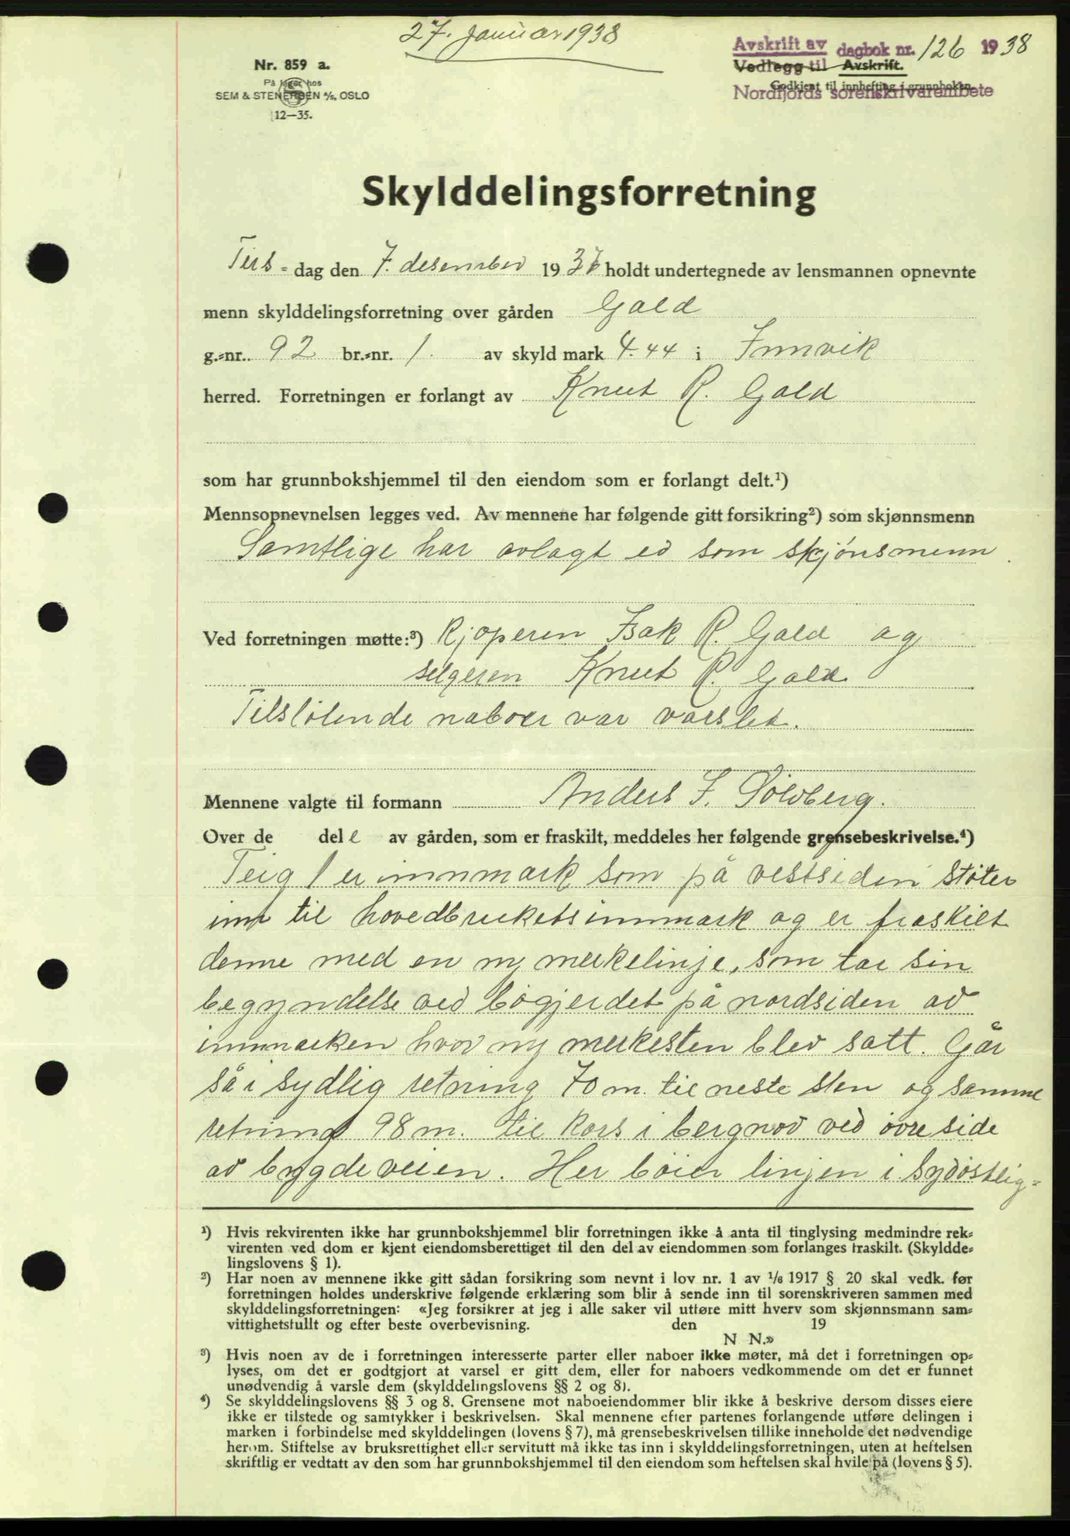 27. januar 1938
Avskrift av dagbok nr. 126 1938
Vedlegg til Avskrift.
Godkjent til innhefting i grunnboken.
Nordfjords sorenskriverembete
Nr. 859 a.
På lager hos
SEM & STENERSEN A/S, OSLO
12—35.
Skylddelingsforretning
Tirs-dag den 7. desember 1937 holdt undertegnede av lensmannen opnevnte
menn skylddelingsforretning over gården Gald
g.-nr. 92 br.-nr. 1. av skyld mark 4.44 i Innvik
herred. Forretningen er forlangt av Knut R. Gald
som har grunnbokshjemmel til den eiendom som er forlangt delt.¹)
Mennsopnevnelsen legges ved. Av mennene har følgende gitt forsikring²) som skjønnsmenn
Samtlige har avlagt ed som skjønsmenn.
Ved forretningen møtte:³) Kjøperen Isak R. Gald og
selgeren Knut R. Gald.
Tilstøtende naboer var varslet.
Mennene valgte til formann Anders J. Solvberg.
Over de dele av gården, som er fraskilt, meddeles her følgende grensebeskrivelse.⁴)
Teig 1 er innmark som på vestsiden støter
inn til hovedbruketsinnmark og er fraskilt
denne med en ny merkelinje, som tar sin
begyndelse ved bøgjerdet på nordsiden av
innmarken hvor ny merkesten blev satt. Går
så i sydlig retning 70 m. til neste sten og samme
retning 98 m. til kors i bergnov ved øvre side
av bygdeveien. Her bøier linjen i sydøstlig-
¹) Hvis rekvirenten ikke har grunnbokshjemmel blir forretningen ikke å anta til tinglysing medmindre rek-
virenten ved dom er kjent eiendomsberettiget til den del av eiendommen som forlanges fraskilt. (Skyldde-
lingslovens § 1).
²) Har noen av mennene ikke gitt sådan forsikring som nevnt i lov nr. 1 av 1/6 1917 § 20 skal vedk. før
forretningen holdes underskrive følgende erklæring som blir å sende inn til sorenskriveren sammen med
skylddelingsforretningen: «Jeg forsikrer at jeg i alle saker vil utføre mitt hverv som skjønnsmann sam-
vittighetsfullt og efter beste overbevisning. den 19
N N.»
³) Hvis noen av de i forretningen interesserte parter eller naboer ikke møter, må det i forretningen op-
lyses, om det er godtgjort at varsel er gitt dem, eller for naboers vedkommende om det er funnet
unødvendig å varsle dem (skylddelingslovens §§ 2 og 8).
⁴) Se skylddelingslovens §§ 3 og 8. Grensene mot naboeiendommer blir ikke å beskrive dersom disses eiere
ikke er tilstede og samtykker i beskrivelsen. Skal mennene efter partenes forlangende utføre delingen i
marken i forbindelse med skylddelingen (lovens § 7), må grensebeskrivelsen tillike inneholde det nødvendige
herom. Stiftelse av bruksrettighet eller servitutt må ikke tas inn i skylddelingsforretningen, uten at heftelsen
skriftlig er vedtatt av den som har grunnbokshjemmel til den eiendom som heftelsen skal hvile på (lovens § 5).